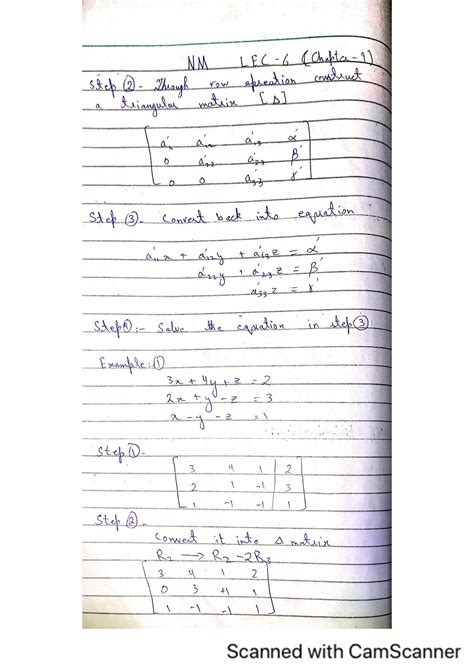 NM LEC-6 (Chapter-9)
Step ②- Through row opreation construct
a triangular matrix [Δ]
a'₁₁ a'₁₂ a'₁₃ α'
0 a'₂₂ a'₂₃ β'
0 0 a'₃₃ γ'
Step ③- Convert back into equation
a'₁₁x + a'₁₂y + a'₁₃z = α'
a'₂₂y + a'₂₃z = β'
a'₃₃z = γ'
Step④:- Solve the equation in step③
Example:①
3x + 4y + z = 2
2x + y - z = 3
x - y - z = 1
Step①-
3 4 1 2
2 1 -1 3
1 -1 -1 1
Step②-
Convert it into Δ matrix
R₂ → R₂ - 2R₃
3 4 1 2
0 3 +1 1
1 -1 -1 1
Scanned with CamScanner